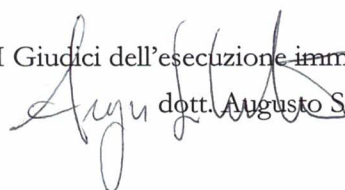 I Giudici dell'esecuzione imm
dott. Augusto S